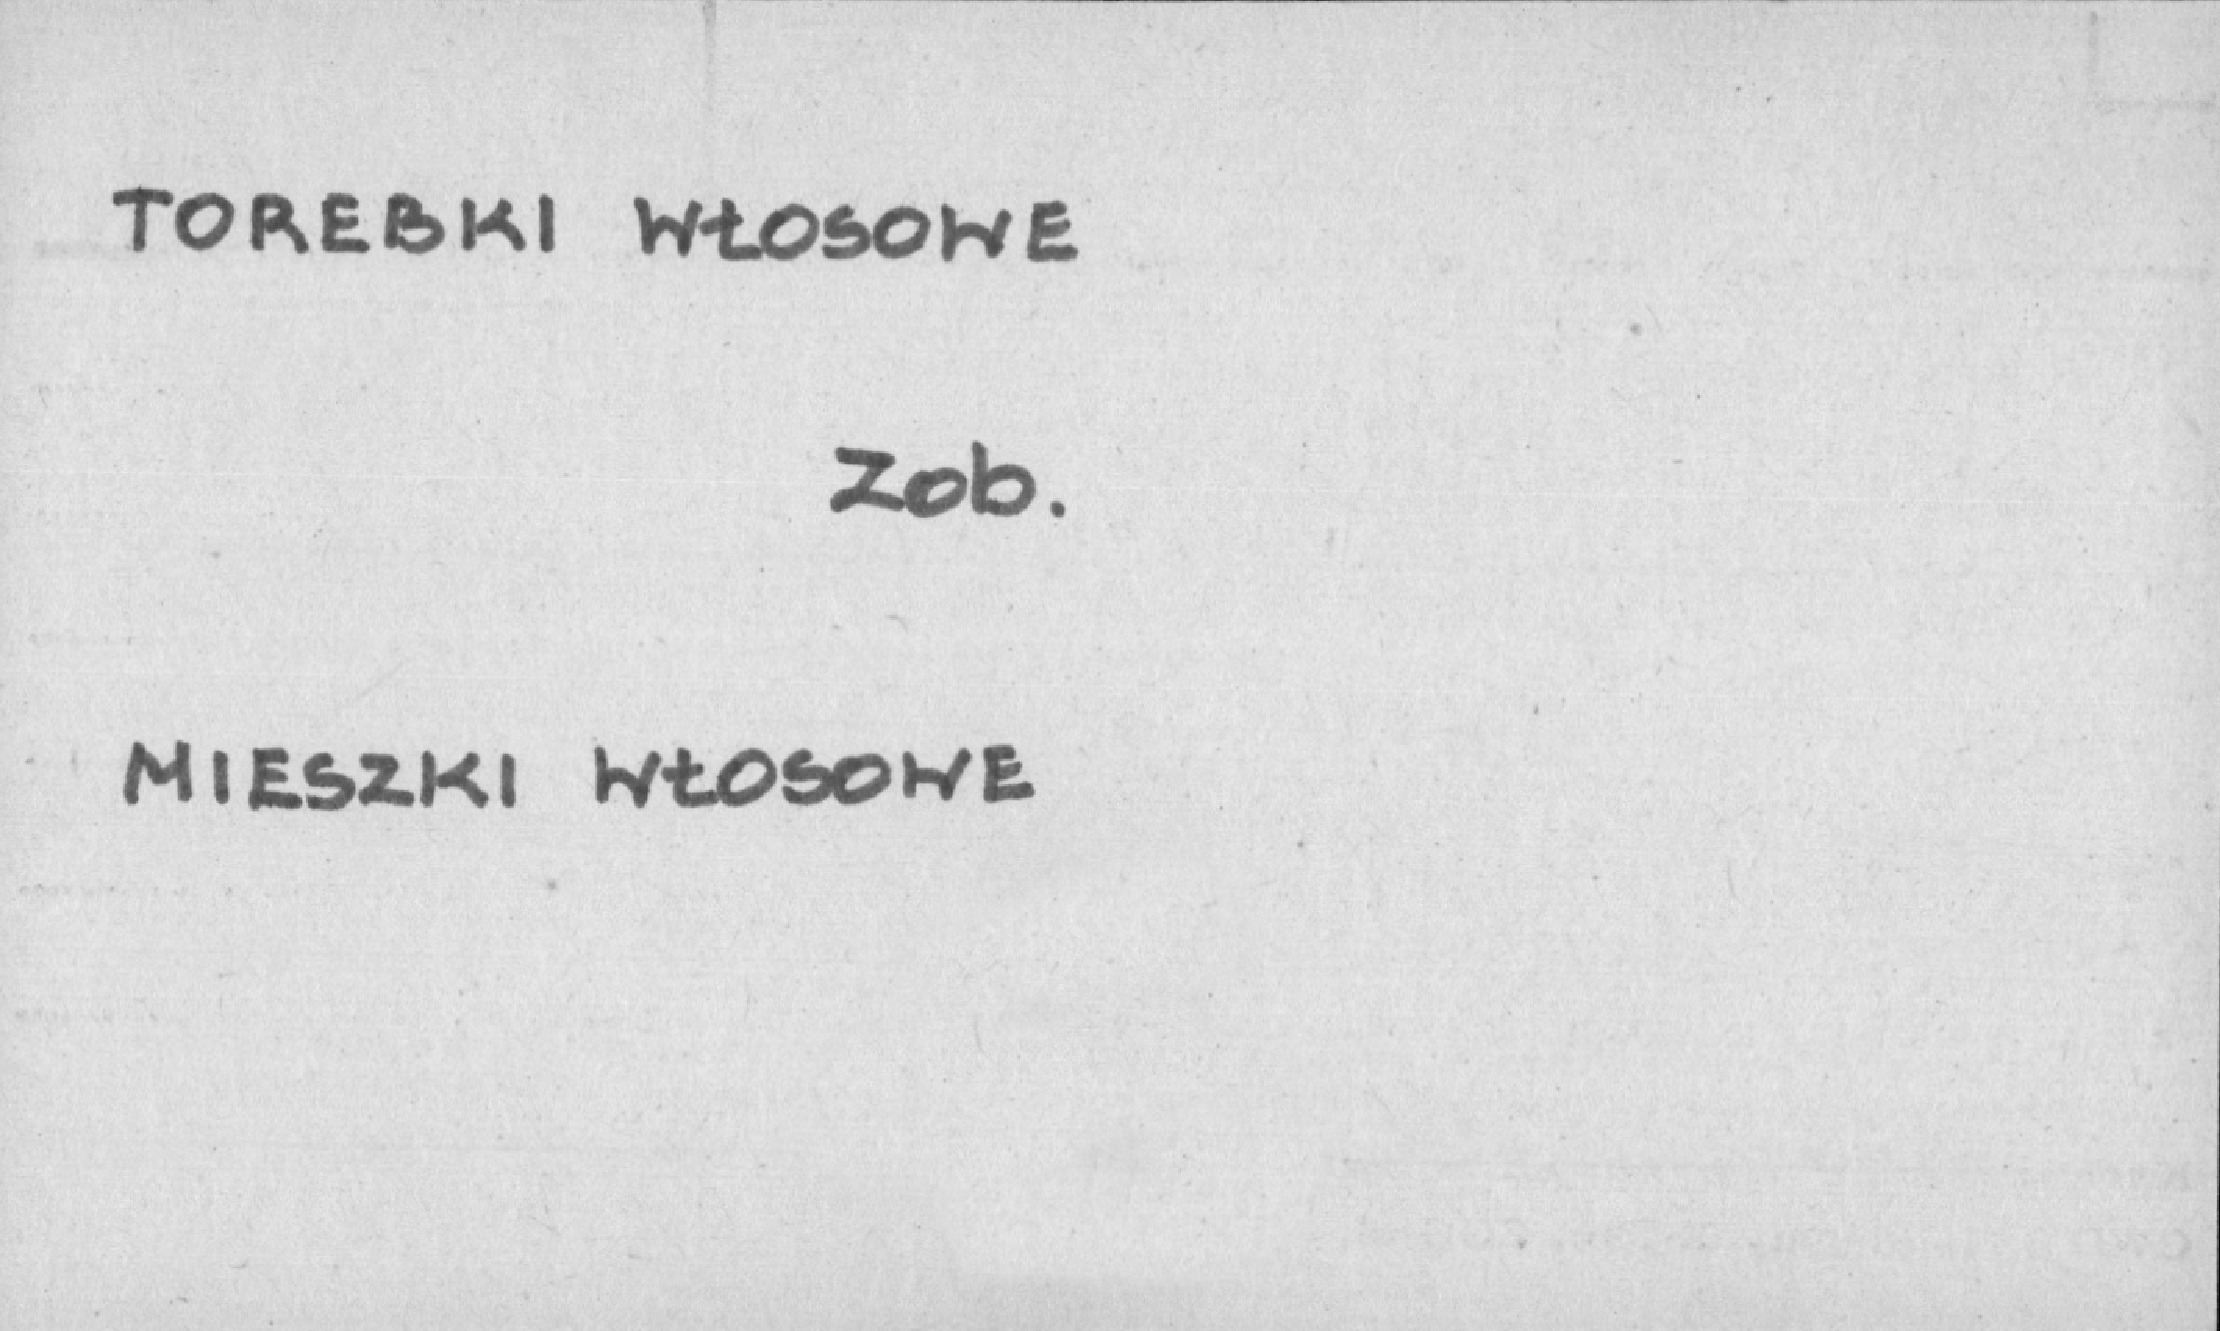 TOREBKI WŁOSOWE
Zob.
MIESZKI WŁOSOWE